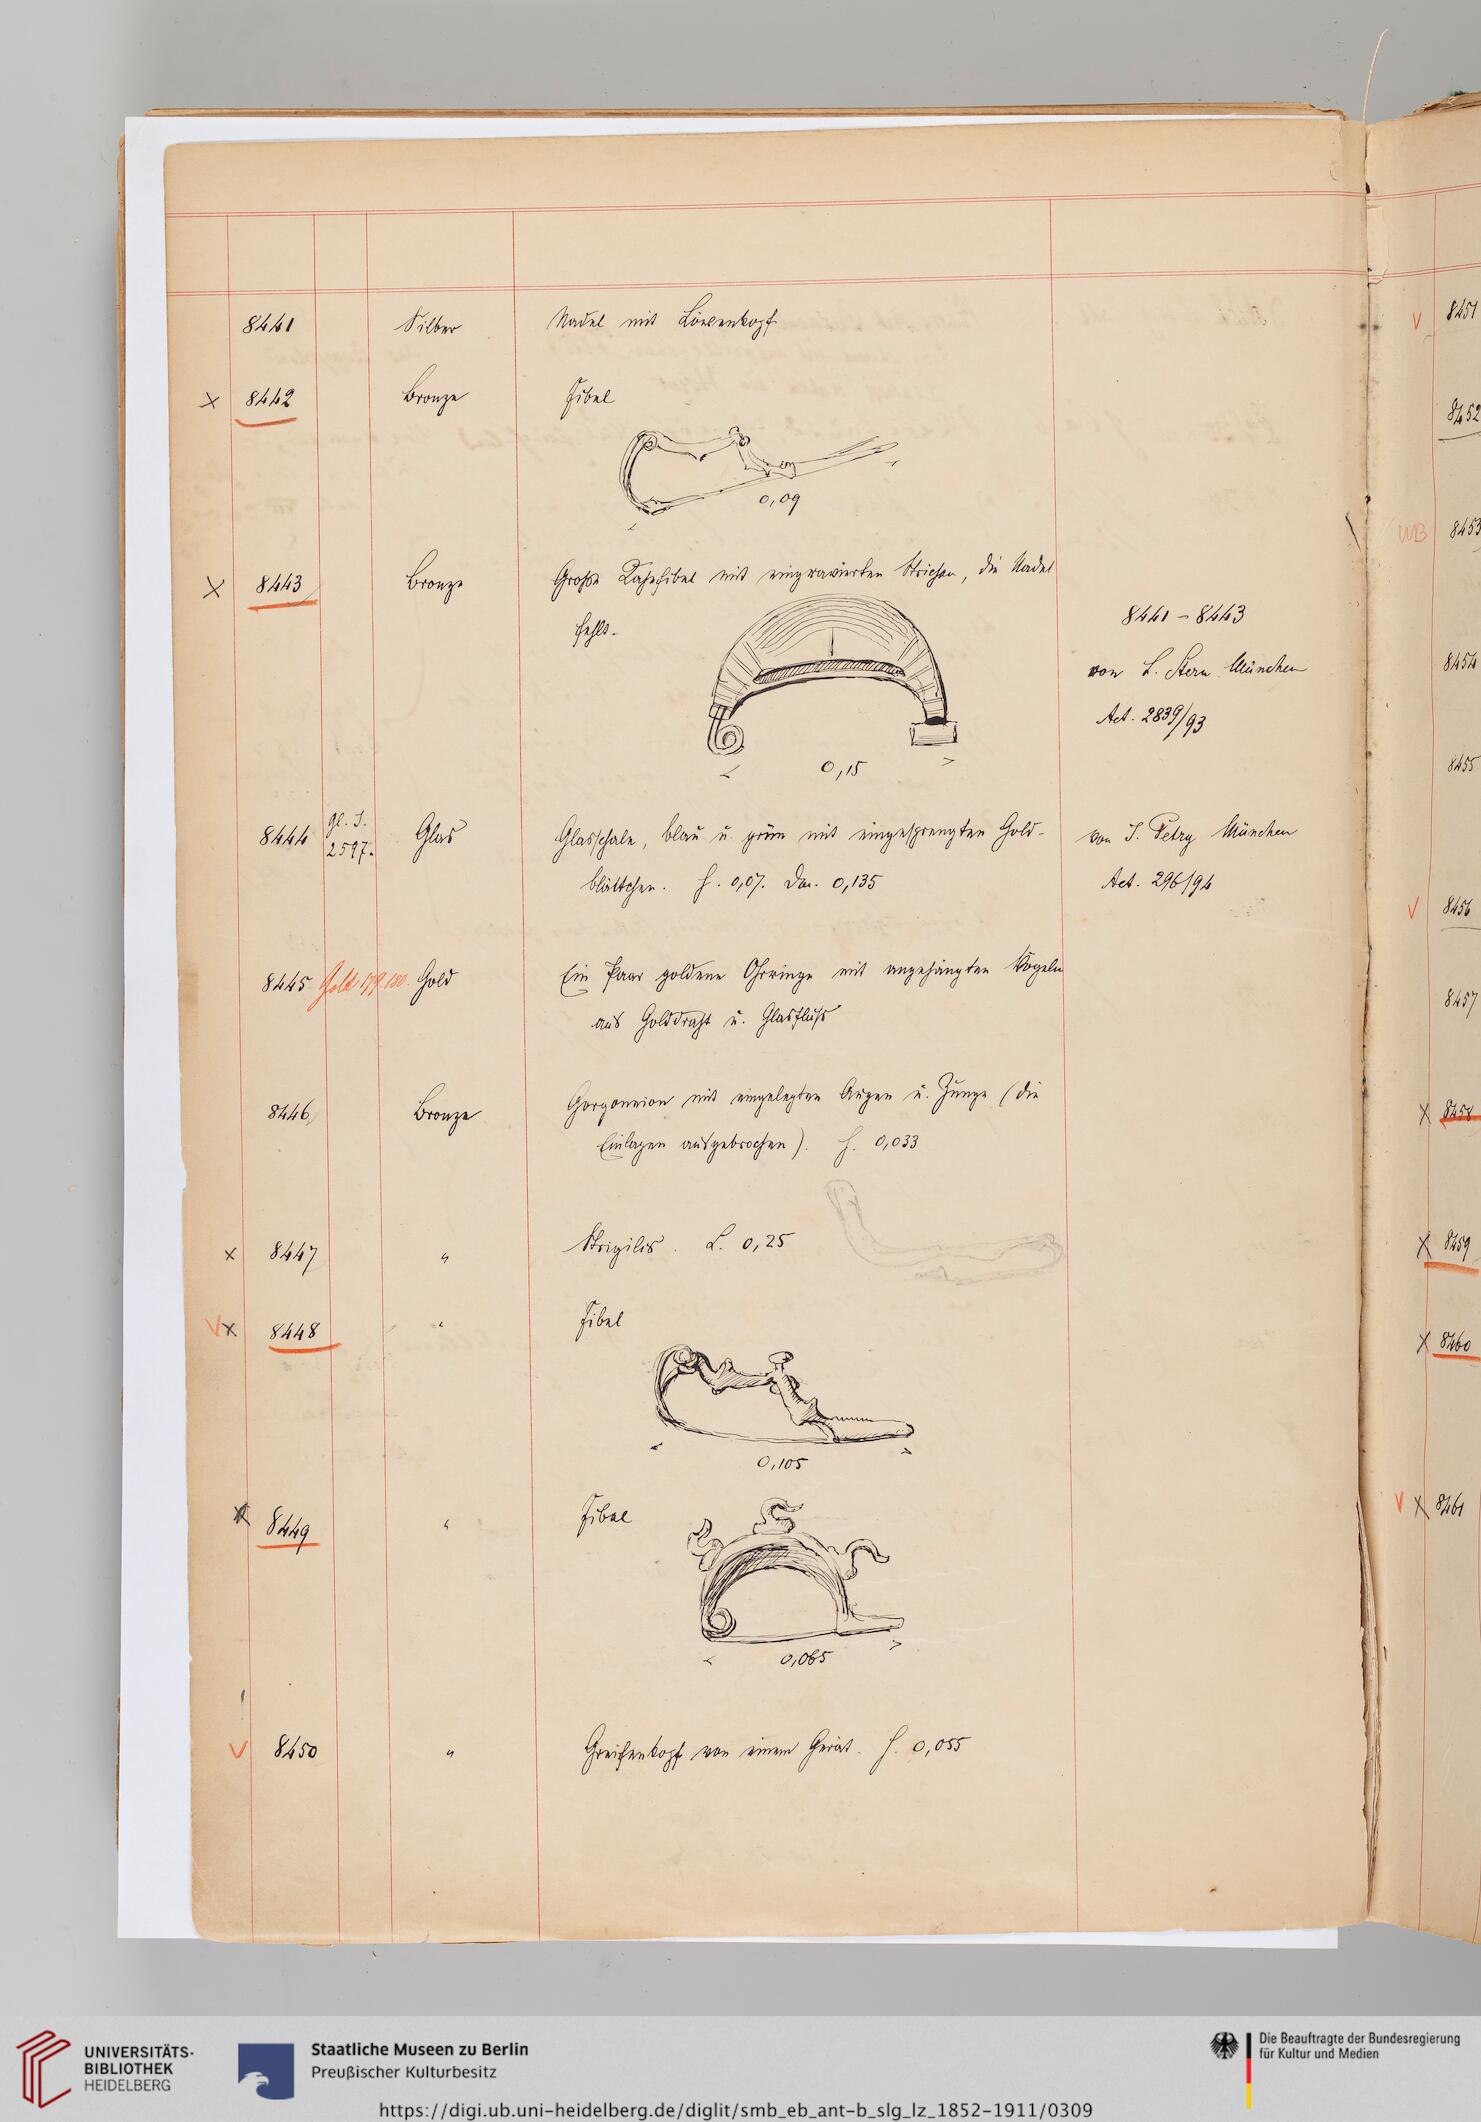 8441 Silber Nadel mit Löwenkopf
x 8442 Bronze Fibel
0,09
x 8443 Bronze Große Kahnfibel mit eingravierten Strichen, die Nadel
fehlt.
0,15
8441 – 8443
von L. Stern München
Act. 2839/93
8444 gl. I. 2597. Glas Glasschale, blau u. grün mit eingesprengten Gold-
blättchen. H. 0,07. Dm. 0,135
von J. Petry München
Act. 296/94
8445 Gold 179.180. Gold Ein Paar goldene Ohrringe mit angehängten Vögeln
aus Golddraht u. Glasfluss
8446 Bronze Gorgoneion mit eingelegten Augen u. Zunge (die
Einlagen ausgebrochen). H. 0,033
x 8447 " Strigilis. L. 0,25
V x 8448 " Fibel
0,105
x 8449 " Fibel
0,065
V 8450 " Greifenkopf von einem Gerät. H. 0,055
V 8451
8452
WB 8453
8454
8455
V 8456
8457
x 8458
x 8459
x 8460
V x 8461
UNIVERSITÄTS-
BIBLIOTHEK
HEIDELBERG
Staatliche Museen zu Berlin
Preußischer Kulturbesitz
Die Beauftragte der Bundesregierung
für Kultur und Medien
https://digi.ub.uni-heidelberg.de/diglit/smb_eb_ant-b_slg_lz_1852-1911/0309